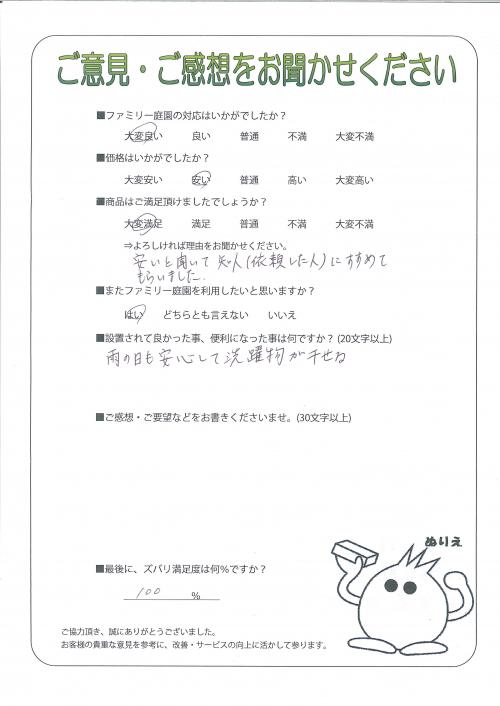 ご意見・ご感想をお聞かせください
■ファミリー庭園の対応はいかがでしたか？
大変良い 良い 普通 不満 大変不満
■価格はいかがでしたか？
大変安い 安い 普通 高い 大変高い
■商品はご満足頂けましたでしょうか？
大変満足 満足 普通 不満 大変不満
⇒よろしければ理由をお聞かせください。
安いと聞いて知人(依頼した人)にすすめて
もらいました.
■またファミリー庭園を利用したいと思いますか？
はい どちらとも言えない いいえ
■設置されて良かった事、便利になった事は何ですか？(20文字以上)
雨の日も安心して洗濯物が干せる
■ご感想・ご要望などをお書きくださいませ。(30文字以上)
ぬりえ
■最後に、ズバリ満足度は何％ですか？
100 ％
ご協力頂き、誠にありがとうございました。
お客様の貴重な意見を参考に、改善・サービスの向上に活かして参ります。